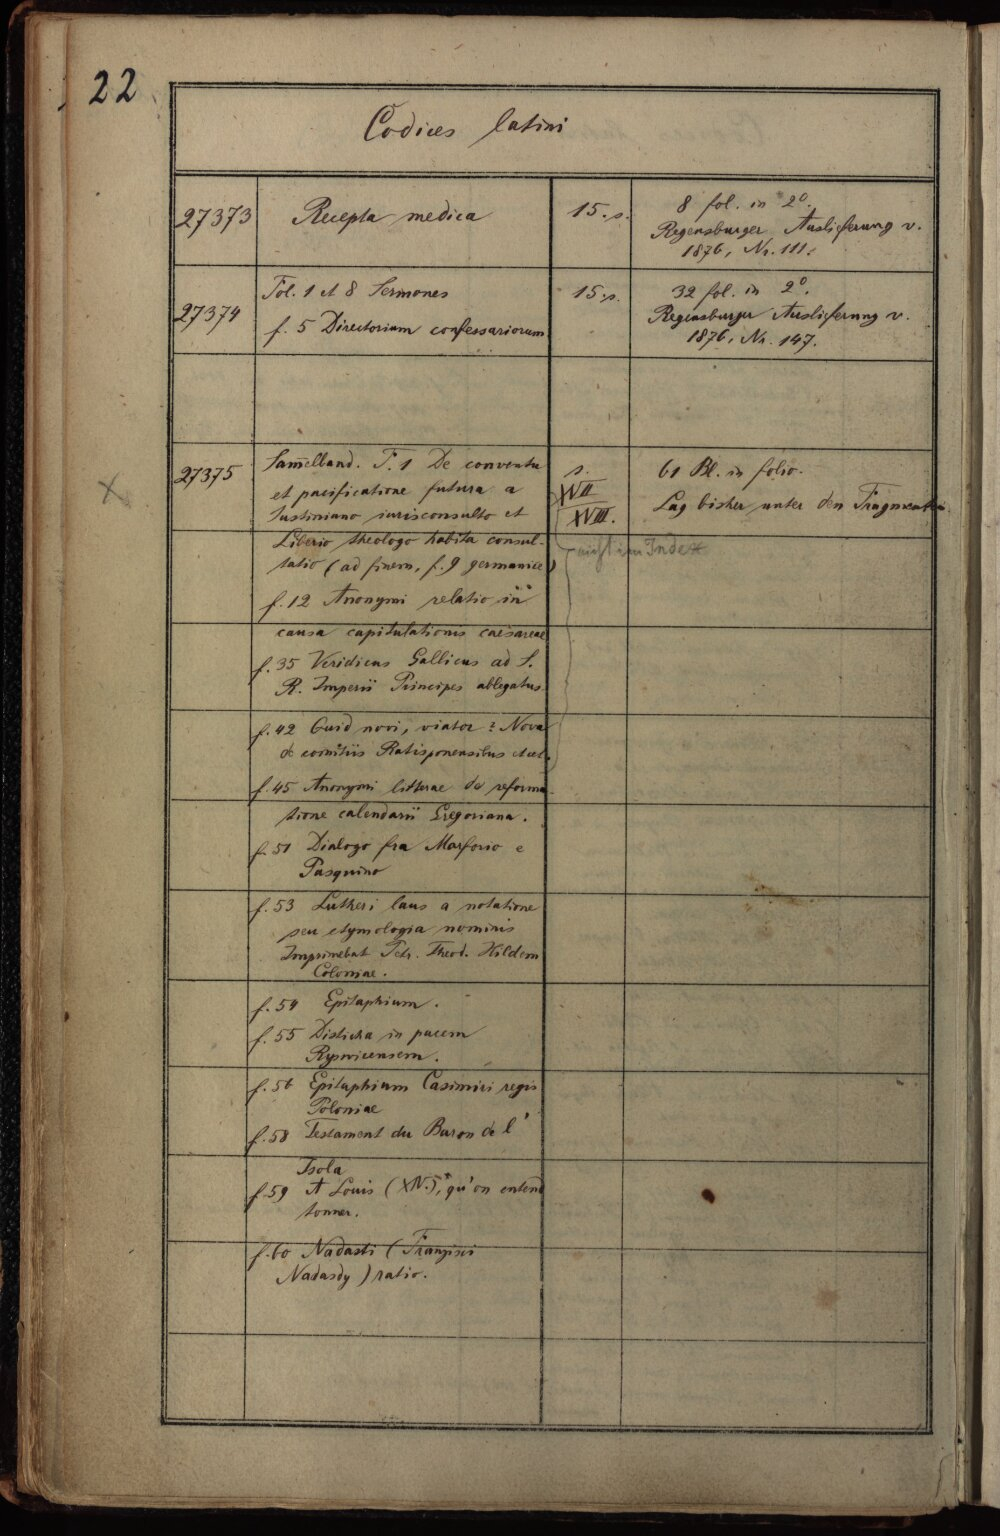 22
Codices latini
27373
Recepta medica
15. s.
8 fol. in 2°.
Regensburger Auslieferung v.
1876, Nr. 111.
27374
Fol. 1 et 8 Sermones
f. 5 Directorium confessariorum
15. s.
32 fol. in 2°.
Regensburger Auslieferung v.
1876, Nr. 147.
X
27375
Sam̄elband. F. 1 De conventu
et pacificatione futura a
Iustiniano iurisconsulto et
Liberio theologo habita consul-
tatio (ad finem, f. 9 germanice)
f. 12 Anonymi relatio in
causa capitulationis caesareae
f. 35 Veridicus Gallicus ad S.
R. Imperii Principes ablegatus
f. 42 Quid novi, viator? Nova
de comitiis Ratisponensibus et cet.
f. 45 Anonymi litterae de reforma-
tione calendarii Gregoriana.
f. 51 Dialogo fra Marforio e
Pasquino
f. 53 Lutheri laus a notatione
seu etymologia nominis
Imprimebat Petr. Theod. Hilden
Coloniae.
f. 54 Epitaphium.
f. 55 Disticha in pacem
Ryswicensem.
f. 56 Epitaphium Casimiri regis
Poloniae
f. 58 Testament du Baron de l'
Isola
f. 59 A Louis (XIV.), qu'on entend
tonner.
f. 60 Nadasti (Franzisci
Nadasdy) ratio.
s.
XVII
XVIII.
61 Bl. in folio.
Lag bisher unter den Fragmenten
nicht im Index